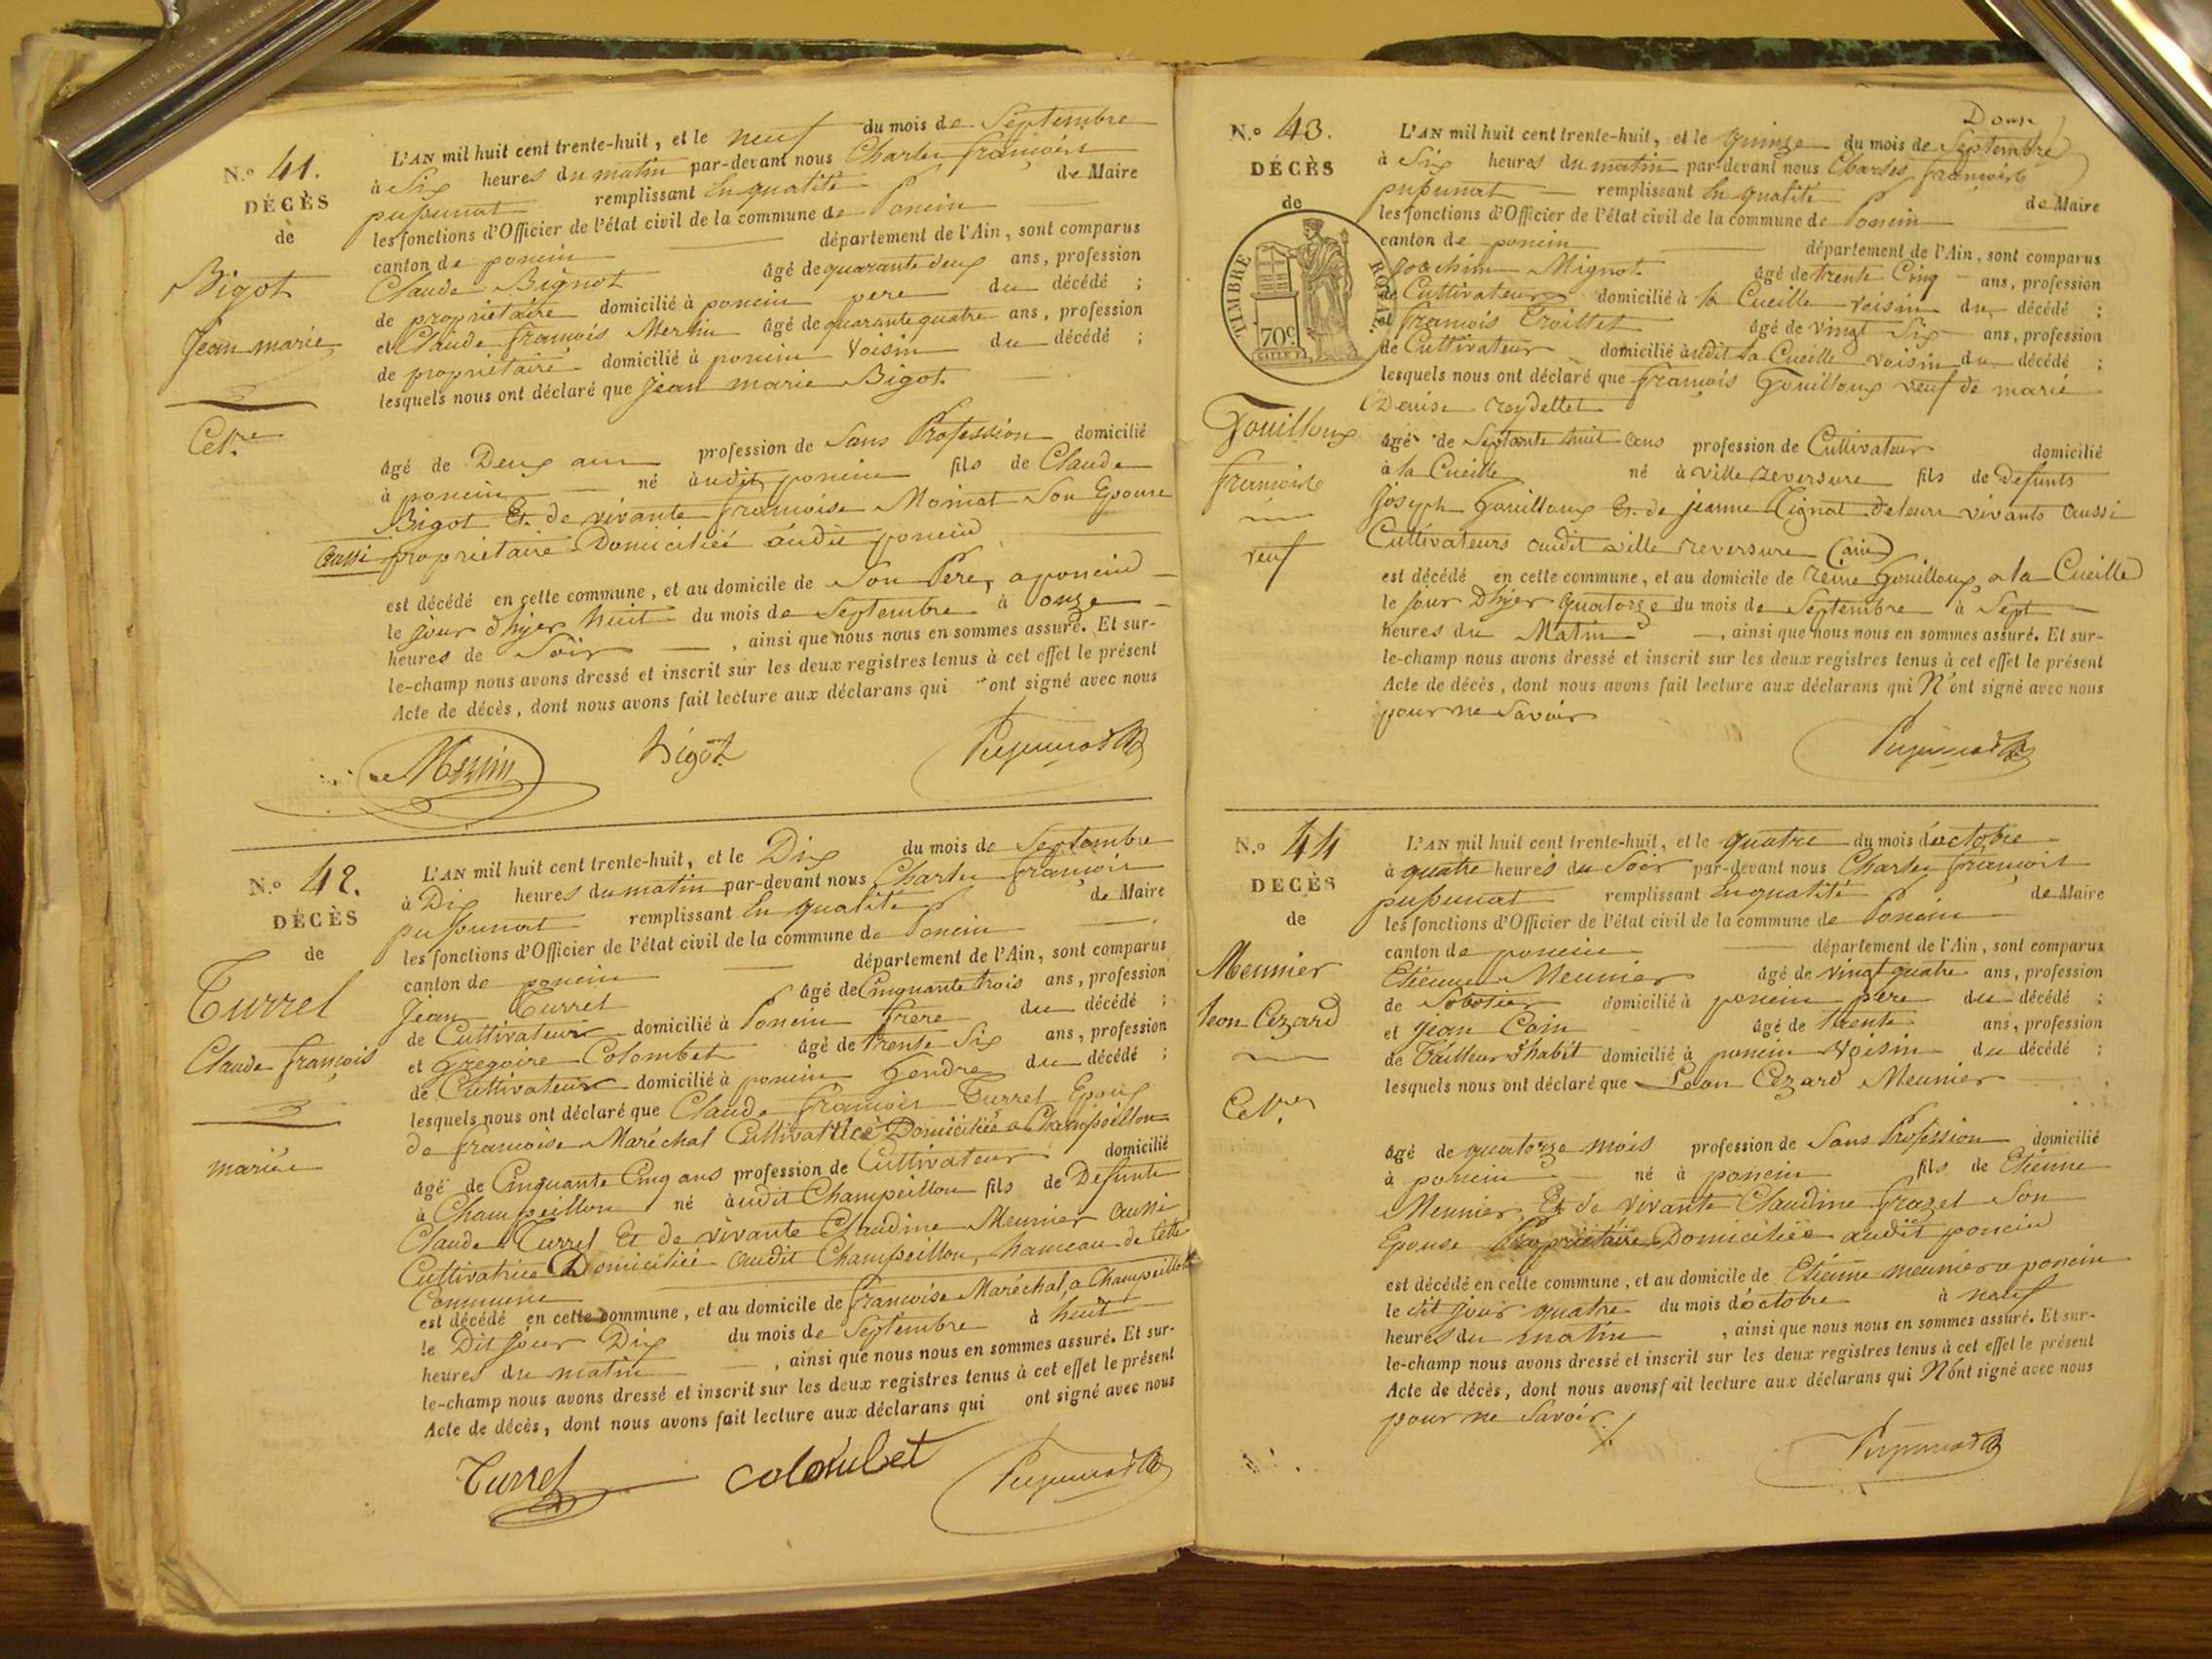 N.o 41.
DÉCÈS
de
Bigot
Jean marie
Cel.re
L'AN mil huit cent trente-huit, et le neuf du mois de Septembre
à Six heures du matin par-devant nous Charles françois
pupunat remplissant En qualité de Maire
les fonctions d'Officier de l'état civil de la commune de Poncin
canton de poncin département de l'Ain, sont comparus
Claude Bignot âgé de quarante deux ans, profession
de propriétaire domicilié à poncin pere du décédé ;
et Claude françois Merlin âgé de quarante quatre ans, profession
de propriétaire domicilié à poncin Voisin du décédé ;
lesquels nous ont déclaré que Jean marie Bigot
âgé de Deux ans profession de Sans Profession domicilié
à poncin né audit poncin fils de Claude
Bigot Et de vivante françoise Moinat Son Epouse
aussi propriétaire Domiciliée audit poncin
est décédé en cette commune, et au domicile de Son Pere, a poncin
le jour d'hyer huit du mois de Septembre à onze
heures de Soir , ainsi que nous nous en sommes assuré. Et sur-
le-champ nous avons dressé et inscrit sur les deux registres tenus à cet effet le présent
Acte de décès, dont nous avons fait lecture aux déclarans qui ont signé avec nous
bigot Pupunat
N.o 42.
DÉCÈS
de
Turrel
Claude françois
mariée
L'AN mil huit cent trente-huit, et le Dix du mois de Septembre
à Dix heures du matin par-devant nous Charles françois
pupunat remplissant En qualité de Maire
les fonctions d'Officier de l'état civil de la commune de Poncin
canton de poncin département de l'Ain, sont comparus
Jean Turrel âgé de Cinquante trois ans, profession
de Cultivateur domicilié à Poncin frere du décédé ;
et gregoire Colombet âgé de trente Six ans, profession
de Cultivateur domicilié à poncin Gendre du décédé ;
lesquels nous ont déclaré que Claude françois Turrel Epoux
de françoise Maréchal Cultivatrice Domiciliée a Champeillon
âgé de Cinquante Cinq ans profession de Cultivateur domicilié
à Champeillon né audit Champeillon fils de Defunte
Claude Turrel Et de vivante Claudine Meunier aussi
Cultivatrice Domiciliée audit Champeillon, hameau de Cette
Commune
est décédé en cette commune, et au domicile de françoise Maréchal, a Champeillon
le Dit jour Dix du mois de Septembre à huit
heures du matin , ainsi que nous nous en sommes assuré. Et sur-
le-champ nous avons dressé et inscrit sur les deux registres tenus à cet effet le présent
Acte de décès, dont nous avons fait lecture aux déclarans qui ont signé avec nous
Turrel colombet Pupunat
N.o 43.
DÉCÈS
de
TIMBRE ROYAL
70c
Gouilloux
françois
veuf
L'AN mil huit cent trente-huit, et le quinze du mois de Septembre
à Six heures du matin par-devant nous Charles françois
pupunat remplissant En qualité de Maire
les fonctions d'Officier de l'état civil de la commune de Poncin
canton de poncin département de l'Ain, sont comparus
Joachim Mignot âgé de trente Cinq ans, profession
de Cultivateur domicilié à la Cueille voisin du décédé ;
et françois Croillet âgé de vingt Six ans, profession
de Cultivateur domicilié audit la Cueille voisin du décédé ;
lesquels nous ont déclaré que françois Gouilloux veuf de marie
Denise reydellet
âgé de Septante huit ans profession de Cultivateur domicilié
à la Cueille né à ville reversure fils de Defunts
Joseph Gouilloux Et de jeanne Tignat de leurs vivants aussi
Cultivateurs audit ville reversure (ain)
est décédé en cette commune, et au domicile de reine Gouilloux a la Cueille
le jour D'hyer quatorze du mois de Septembre à Sept
heures du Matin , ainsi que nous nous en sommes assuré. Et sur-
le-champ nous avons dressé et inscrit sur les deux registres tenus à cet effet le présent
Acte de décès, dont nous avons fait lecture aux déclarans qui N'ont signé avec nous
pour ne Savoir
Pupunat
N.o 44
DECÈS
de
Meunier
leon Cezard
Cel.re
L'AN mil huit cent trente-huit, et le quatre du mois d'octobre
à quatre heures du Soir par-devant nous Charles françois
pupunat remplissant En qualité de Maire
les fonctions d'Officier de l'état civil de la commune de Poncin
canton de poncin département de l'Ain, sont comparus
Etienne Meunier âgé de vingt quatre ans, profession
de Sabotier domicilié à poncin pere du décédé ;
et jean Cain âgé de trente ans, profession
de Tailleur d'habit domicilié à poncin Voisin du décédé ;
lesquels nous ont déclaré que Leon Cezard Meunier
âgé de quatorze mois profession de Sans Profession domicilié
à poncin né à poncin fils de Etienne
Meunier Et de vivante Claudine frazet Son
Epouse Propriétaire Domiciliée audit poncin
est décédé en cette commune, et au domicile de Etienne meunier a poncin
le dit jour quatre du mois d'octobre à neuf
heures du matin , ainsi que nous nous en sommes assuré. Et sur-
le-champ nous avons dressé et inscrit sur les deux registres tenus à cet effet le présent
Acte de décès, dont nous avons fait lecture aux déclarans qui N'ont signé avec nous
pour ne Savoir
Pupunat